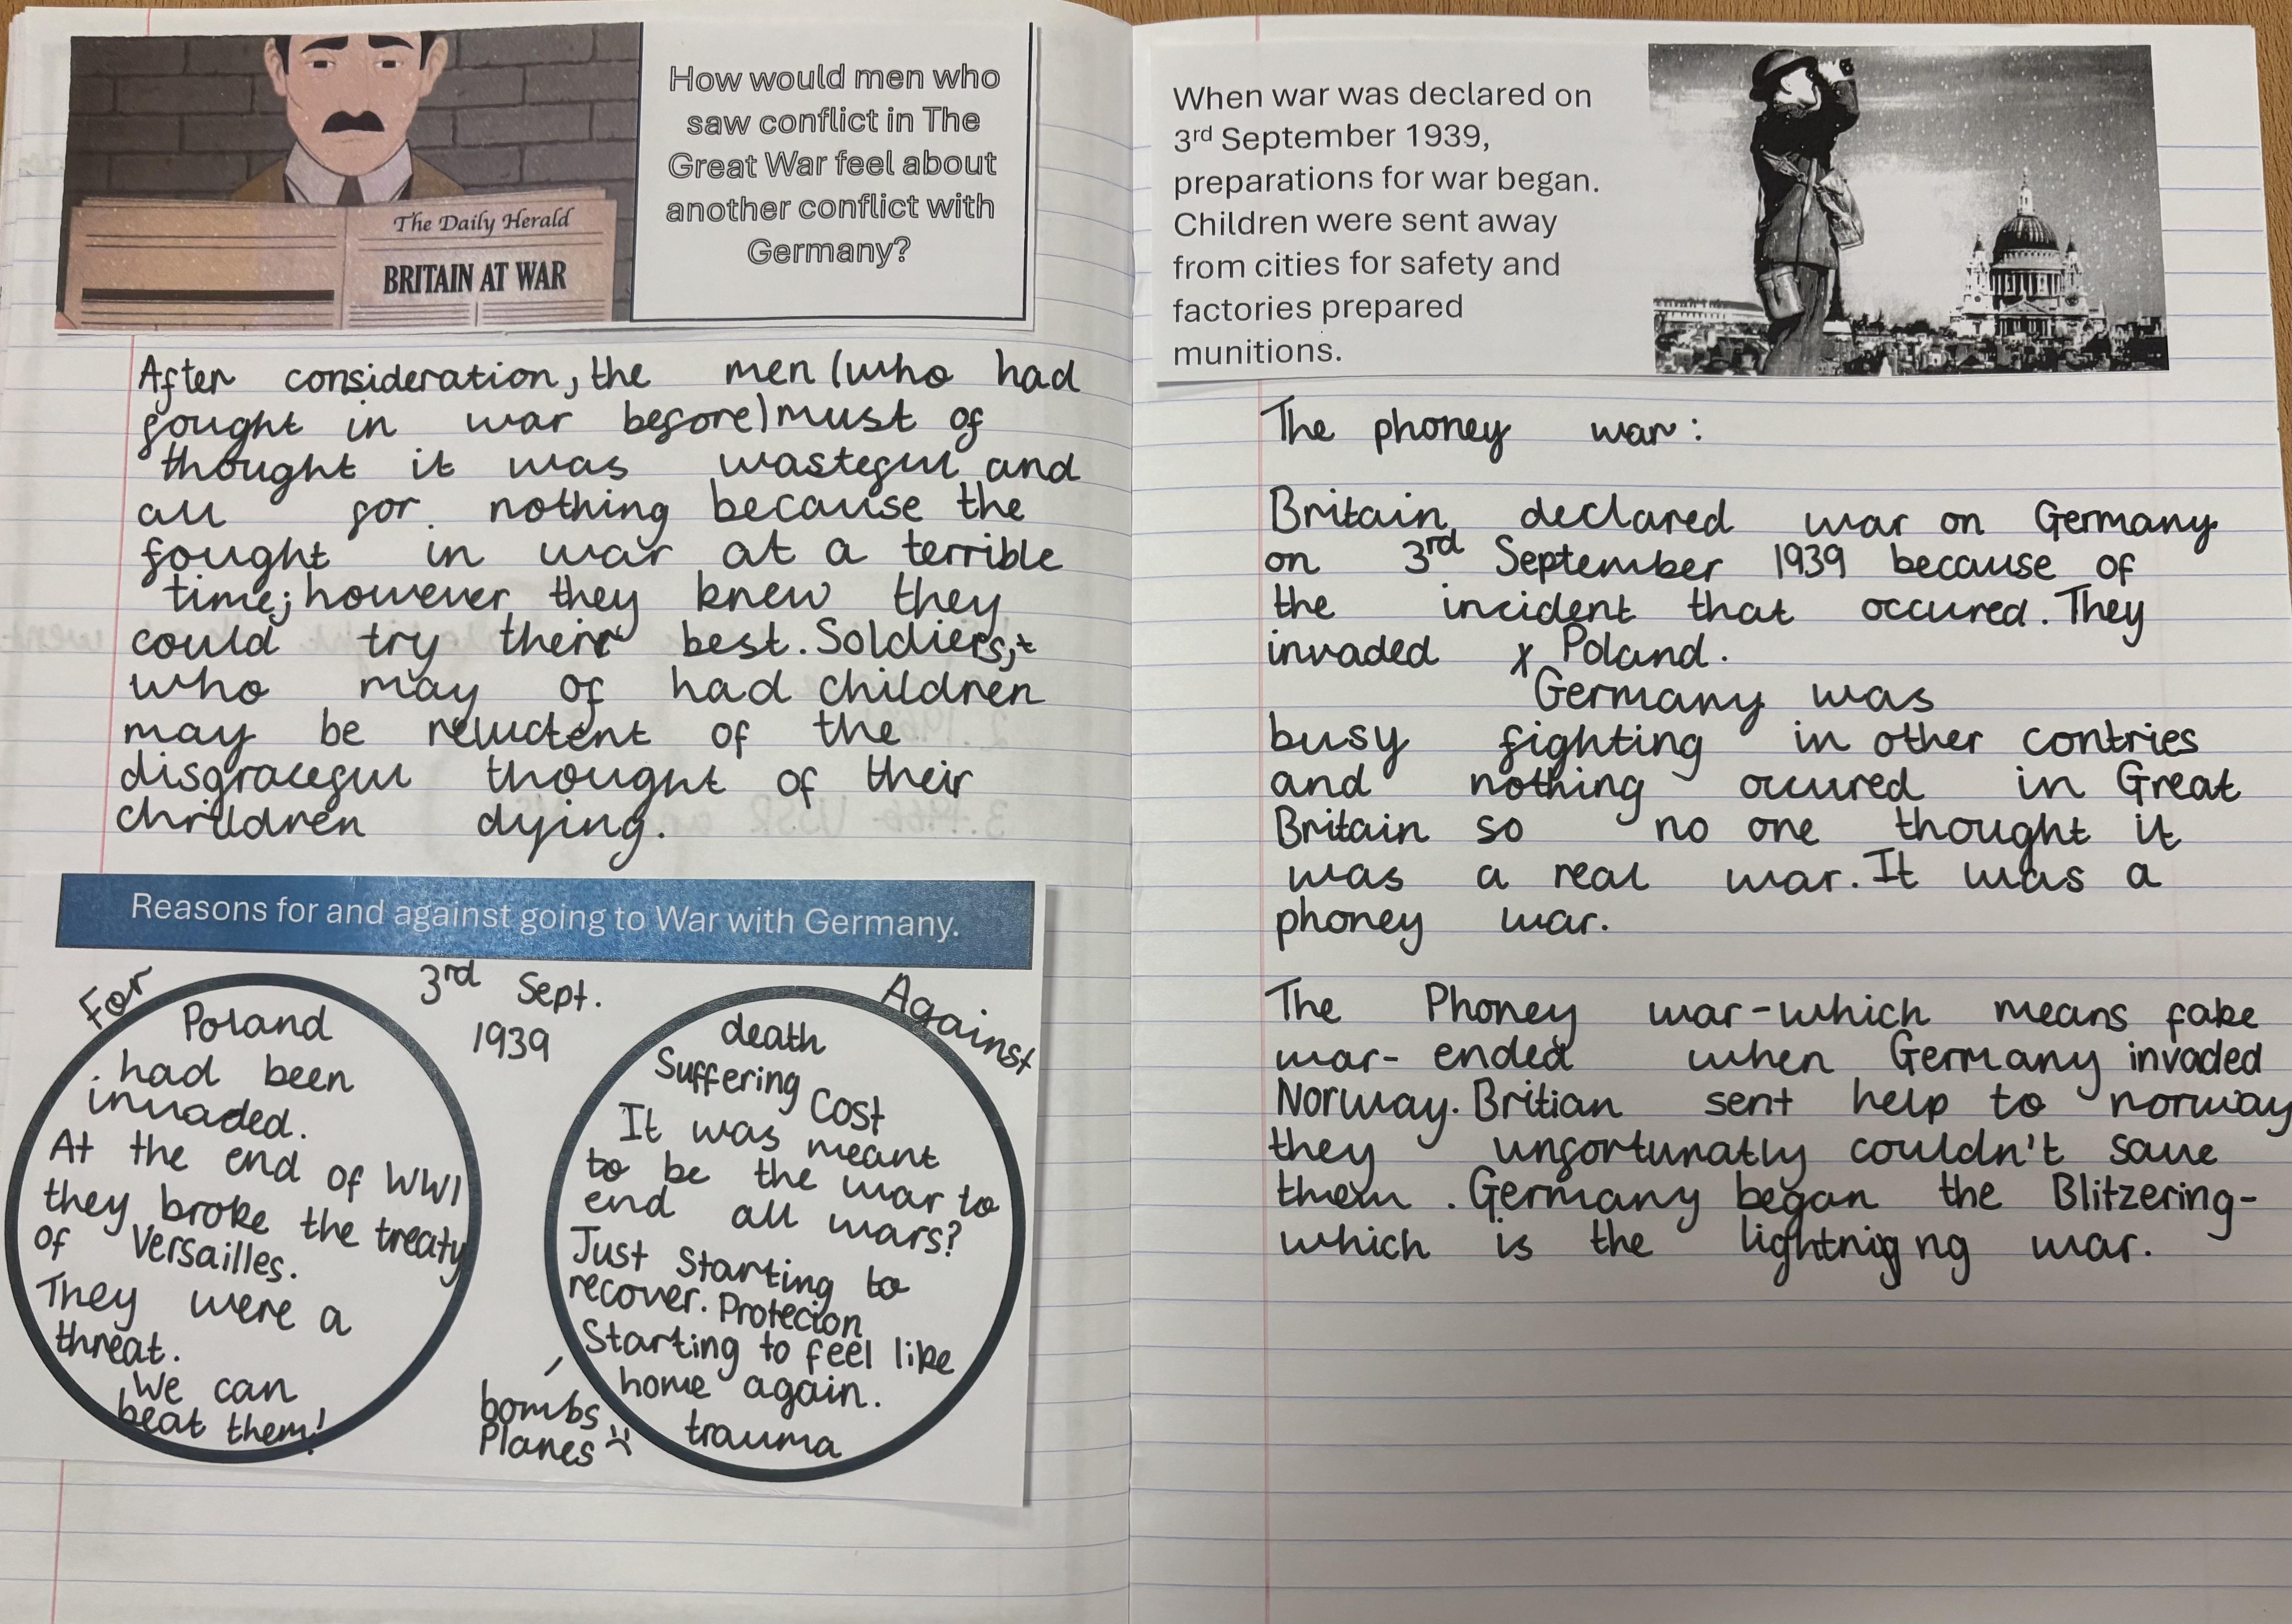 The Daily Herald
BRITAIN AT WAR
How would men who
saw conflict in The
Great War feel about
another conflict with
Germany?
After consideration, the men (who had
fought in war before) must of
thought it was wasteful and
all for nothing because the
fought in war at a terrible
time; however they knew they
could try their best. Soldiers,
who may of had children
may be reluctent of the
disgraceful thought of their
children dying.
Reasons for and against going to War with Germany.
For
Poland
had been
invaded.
At the end of WW1
they broke the treaty
of Versailles.
They were a
threat.
We can
beat them!
3rd Sept.
1939
Against
death
Suffering
Cost
It was meant
to be the war to
end all wars?
Just starting to
recover. Protecion
Starting to feel like
home again.
trauma
bombs
Planes
When war was declared on
3rd September 1939,
preparations for war began.
Children were sent away
from cities for safety and
factories prepared
munitions.
The phoney war:
Britain declared war on Germany
on 3rd September 1939 because of
the incident that occured. They
invaded x Poland.
Germany was
busy fighting in other contries
and nothing occured in Great
Britain so no one thought it
was a real war. It was a
phoney war.
The Phoney war-which means fake
war- ended when Germany invaded
Norway. Britian sent help to norway
they unfortunatly couldn't save
them. Germany began the Blitzering-
which is the lightnig ng war.